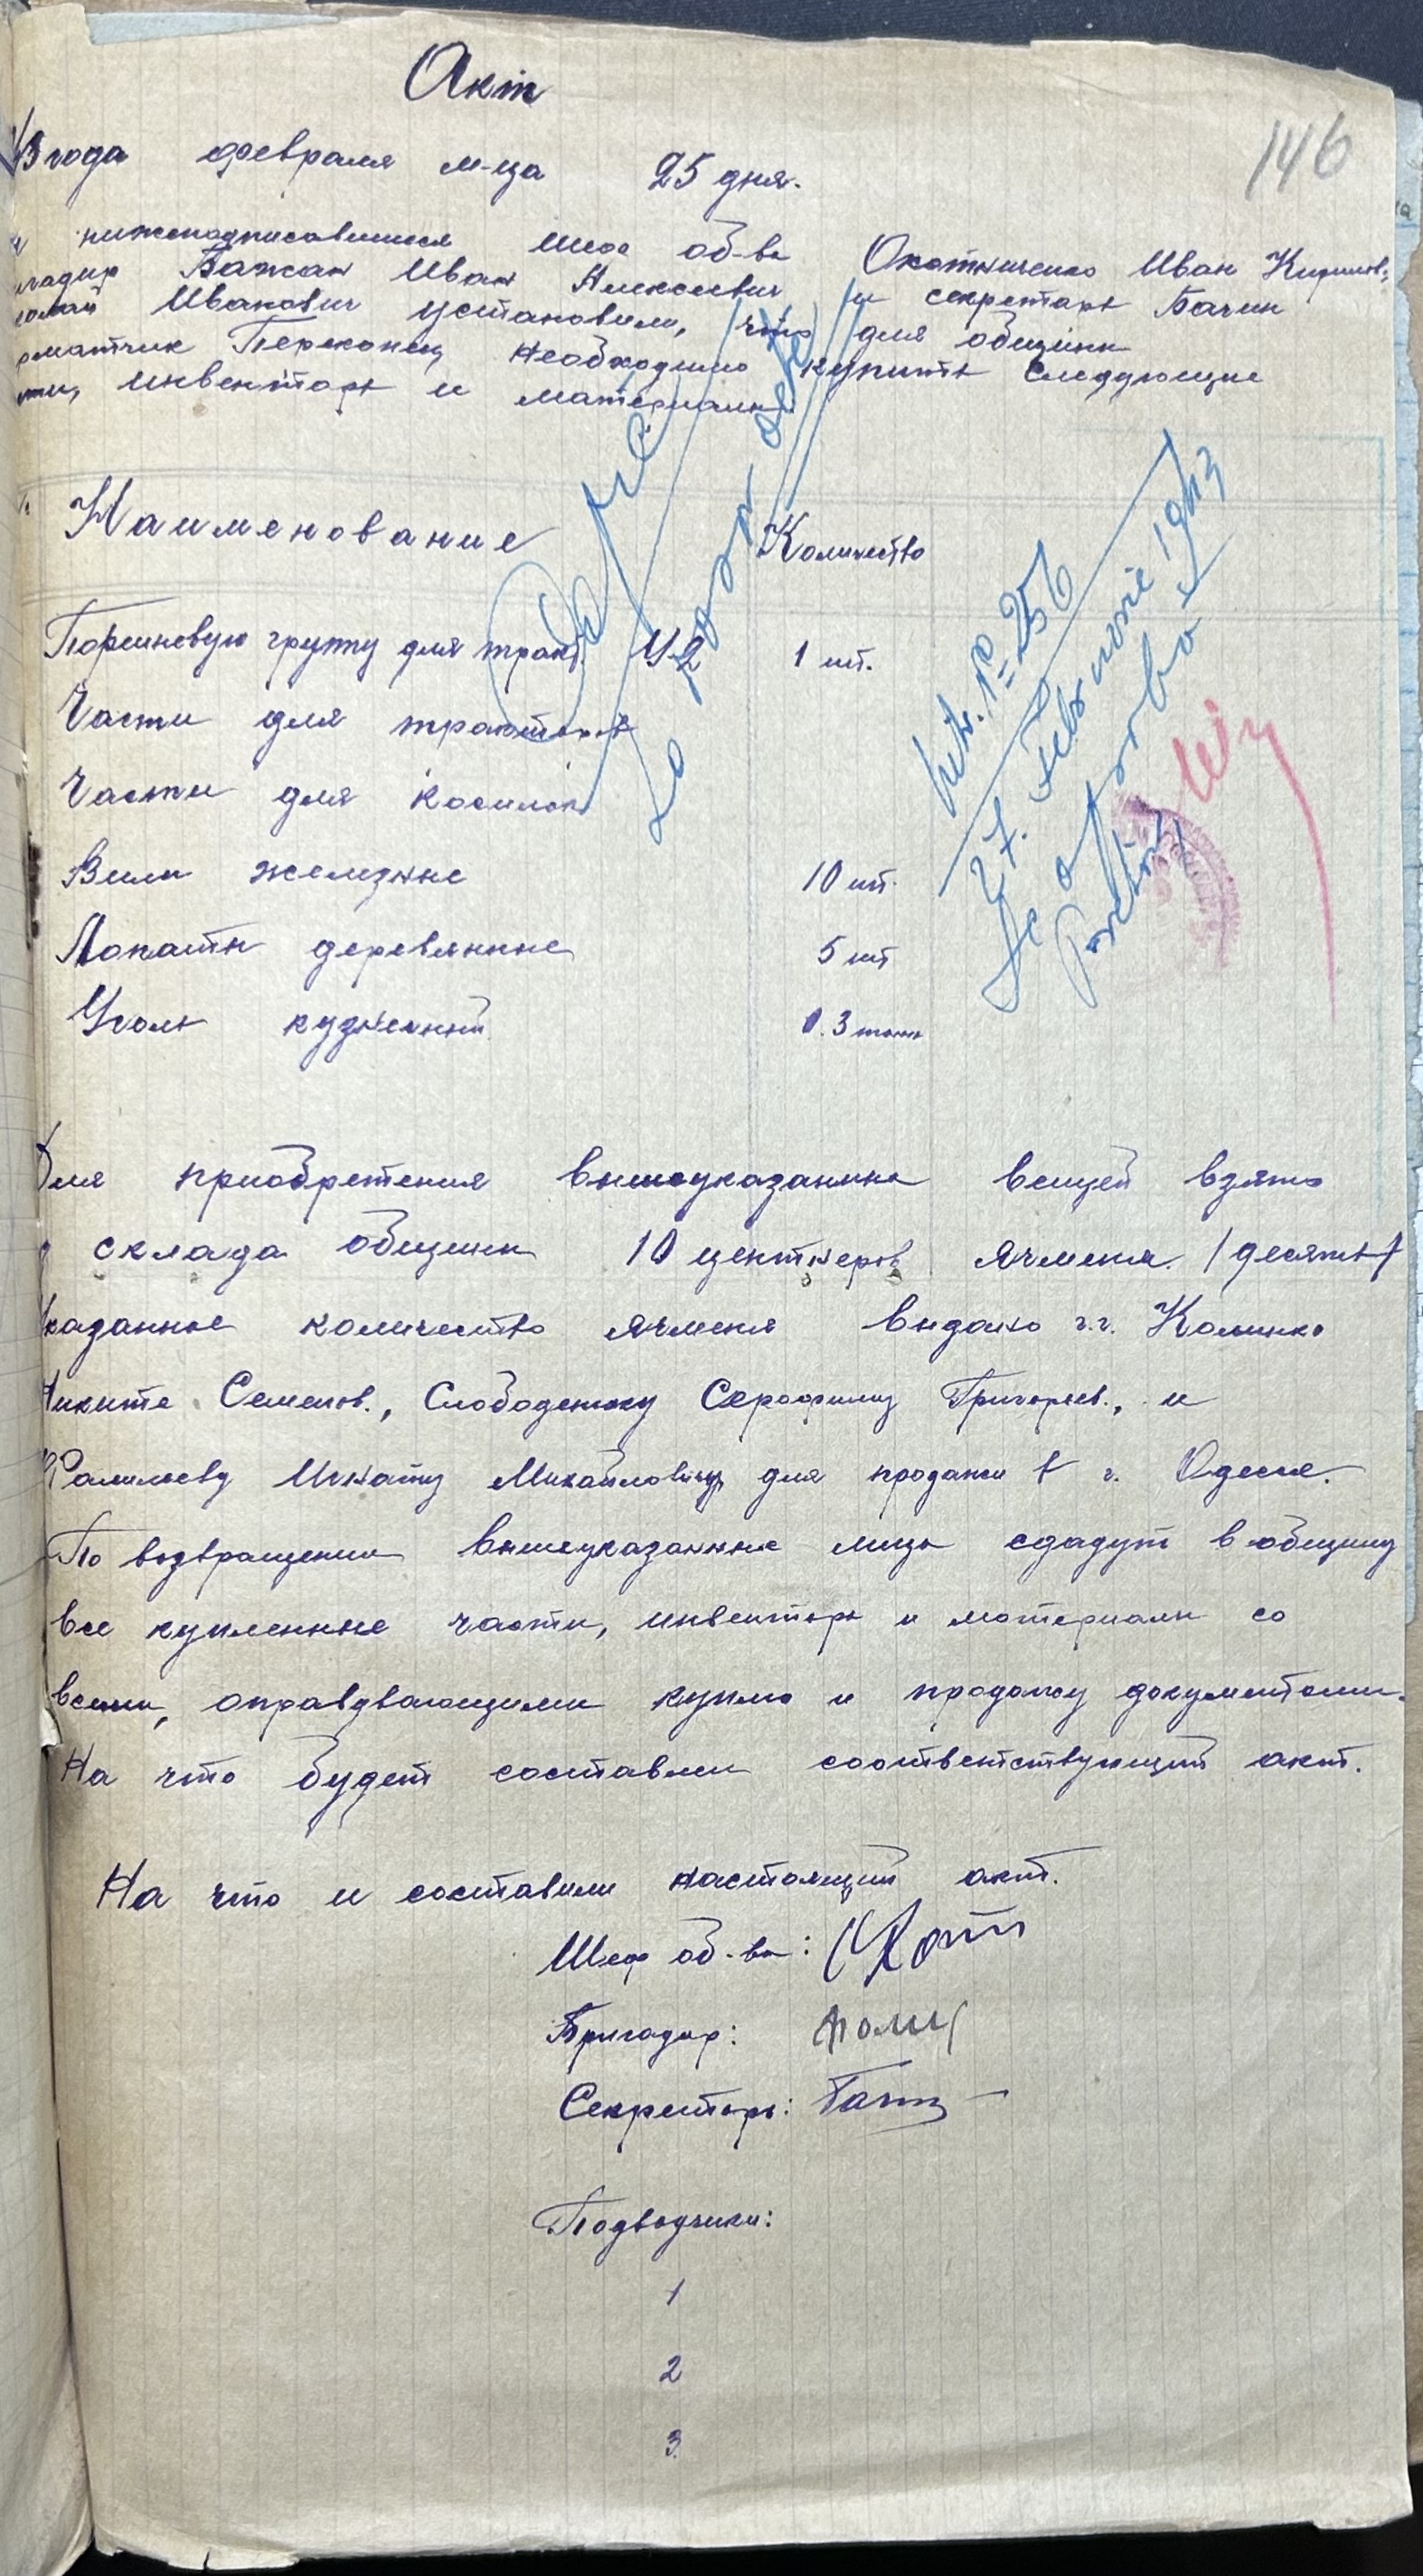 Акт
146
3 года февраля м-ца 25 дня.
нижеподписавшиеся шеф об-ва Охотниченко Иван Кирилов.,
Бажан Иван Алексеевич и секретарь Бачин
Иванович установили, что для общины
Перекопец необходимо купить следующие
инвентарь и материалы.
Наименование Количество
Поршневую группу для тракт. У2 1 шт.
Части для тракторов
Части для косилок
Вилы железные 10 шт.
Лопаты деревянные 5 шт
Уголь кузнечный 0.3 тонн
Intr. No 256
27. Februarie 1943
Se aproba
Pretor,
Для приобретения вышеуказанных вещей взято
склада общины 10 центнеров ячменя. /десять/
казанное количество ячменя выдано г.г. Калинко
Никите Семенов., Слободенюку Серафиму Григорьев., и
Игнату Михайловичу для продажи в г. Одессе.
По возвращении вышеуказанные лица сдадут в общину
все купленные части, инвентарь и материалы со
всеми, оправдвающими куплю и продажу документами.
На что будет составлен соответствующий акт.
На что и составили настоящий акт.
Шеф об-ва:
Бригадир:
Секретарь:
Подводчики:
1
2
3.